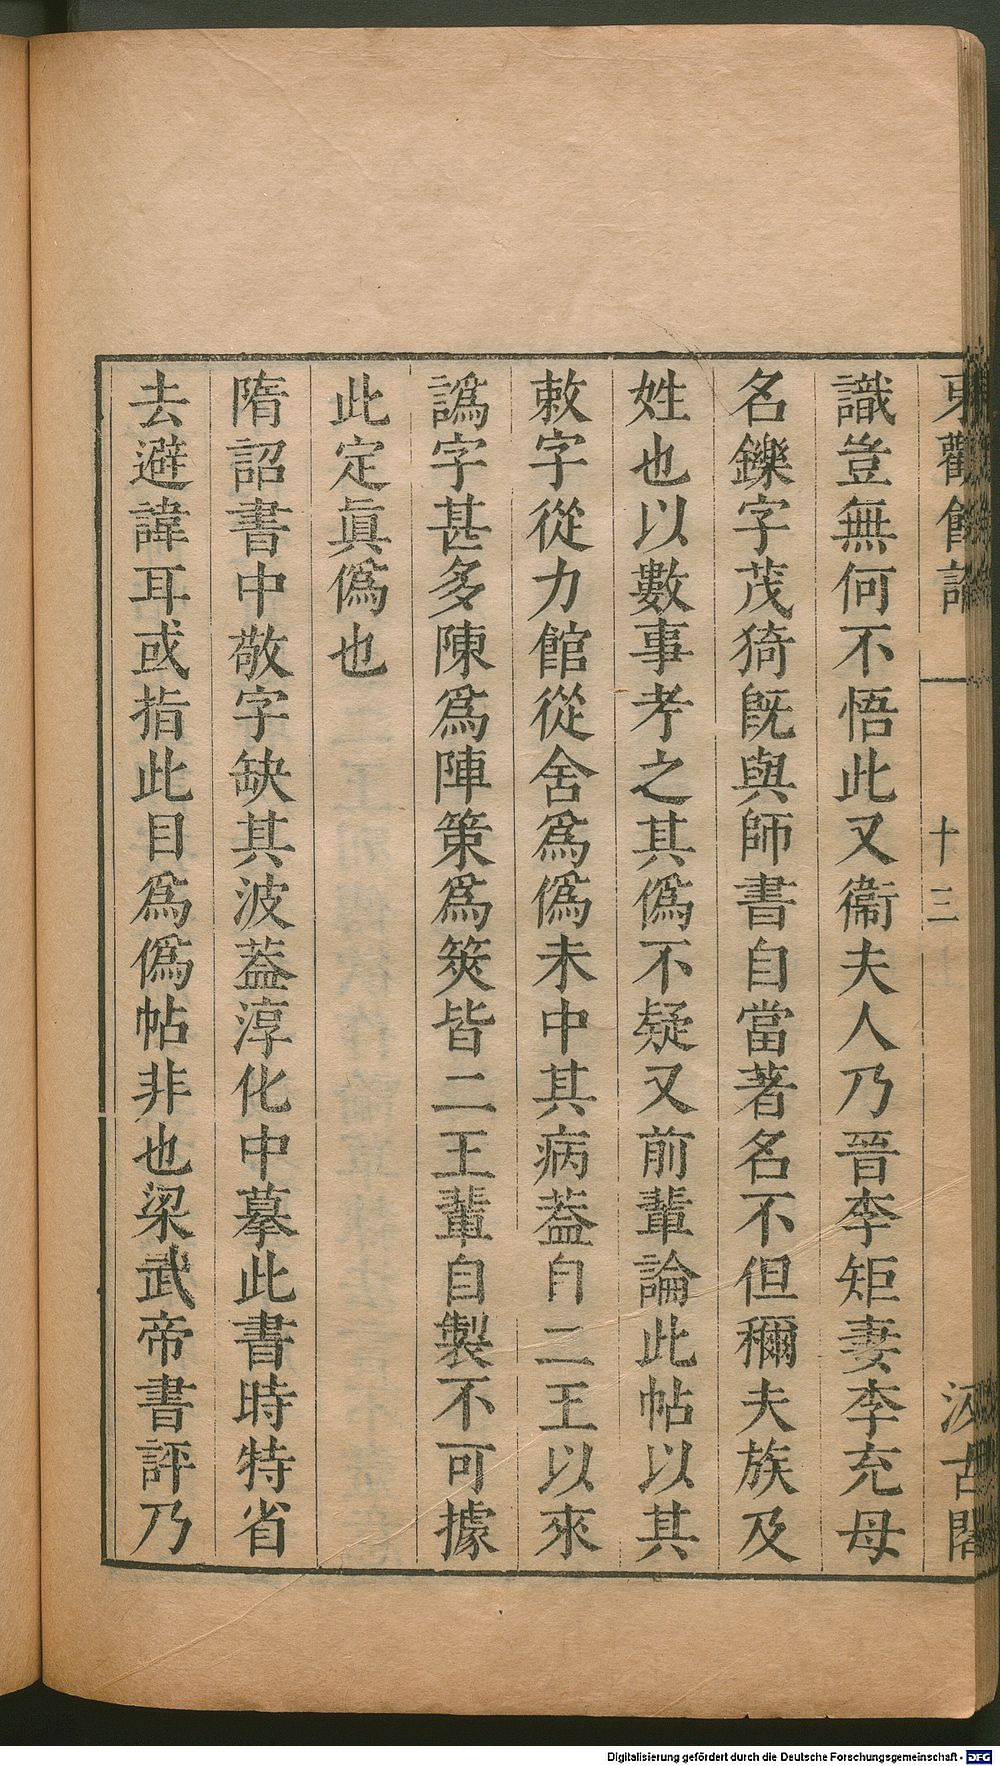 東觀餘論
十三
汲古閣
識豈無何不悟此又衞夫人乃晉李矩妻李充母
名鑠字茂猗旣與師書自當著名不但稱夫族及
姓也以數事考之其僞不疑又前輩論此帖以其
敕字從力館從舍爲僞未中其病葢自二王以來
譌字甚多陳爲陣策爲筴皆二王輩自製不可據
此定眞僞也
隋詔書中敬字缺其波葢淳化中摹此書時特省
去避諱耳或指此目爲僞帖非也梁武帝書評乃
Digitalisierung gefördert durch die Deutsche Forschungsgemeinschaft - DFG